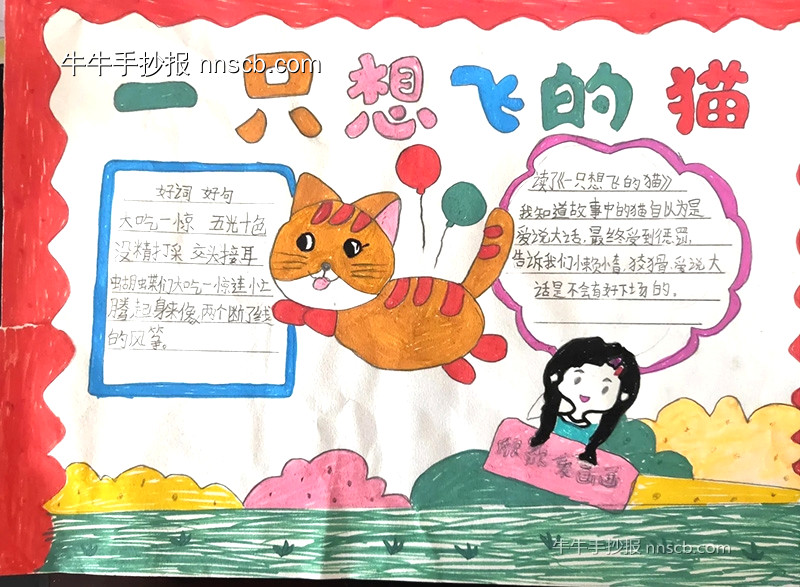 牛牛手抄报 nnscb.com
一只想飞的猫
好词 好句
大吃一惊 五光十色
没精打采 交头接耳
蝴蝶们大吃一惊连忙
腾起身来像两个断了线
的风筝。
读了《一只想飞的猫》
我知道故事中的猫自以为是
爱说大话,最终受到惩罚,
告诉我们懒惰、狡猾、爱说大
话是不会有好下场的。
牛牛手抄报 nnscb.com